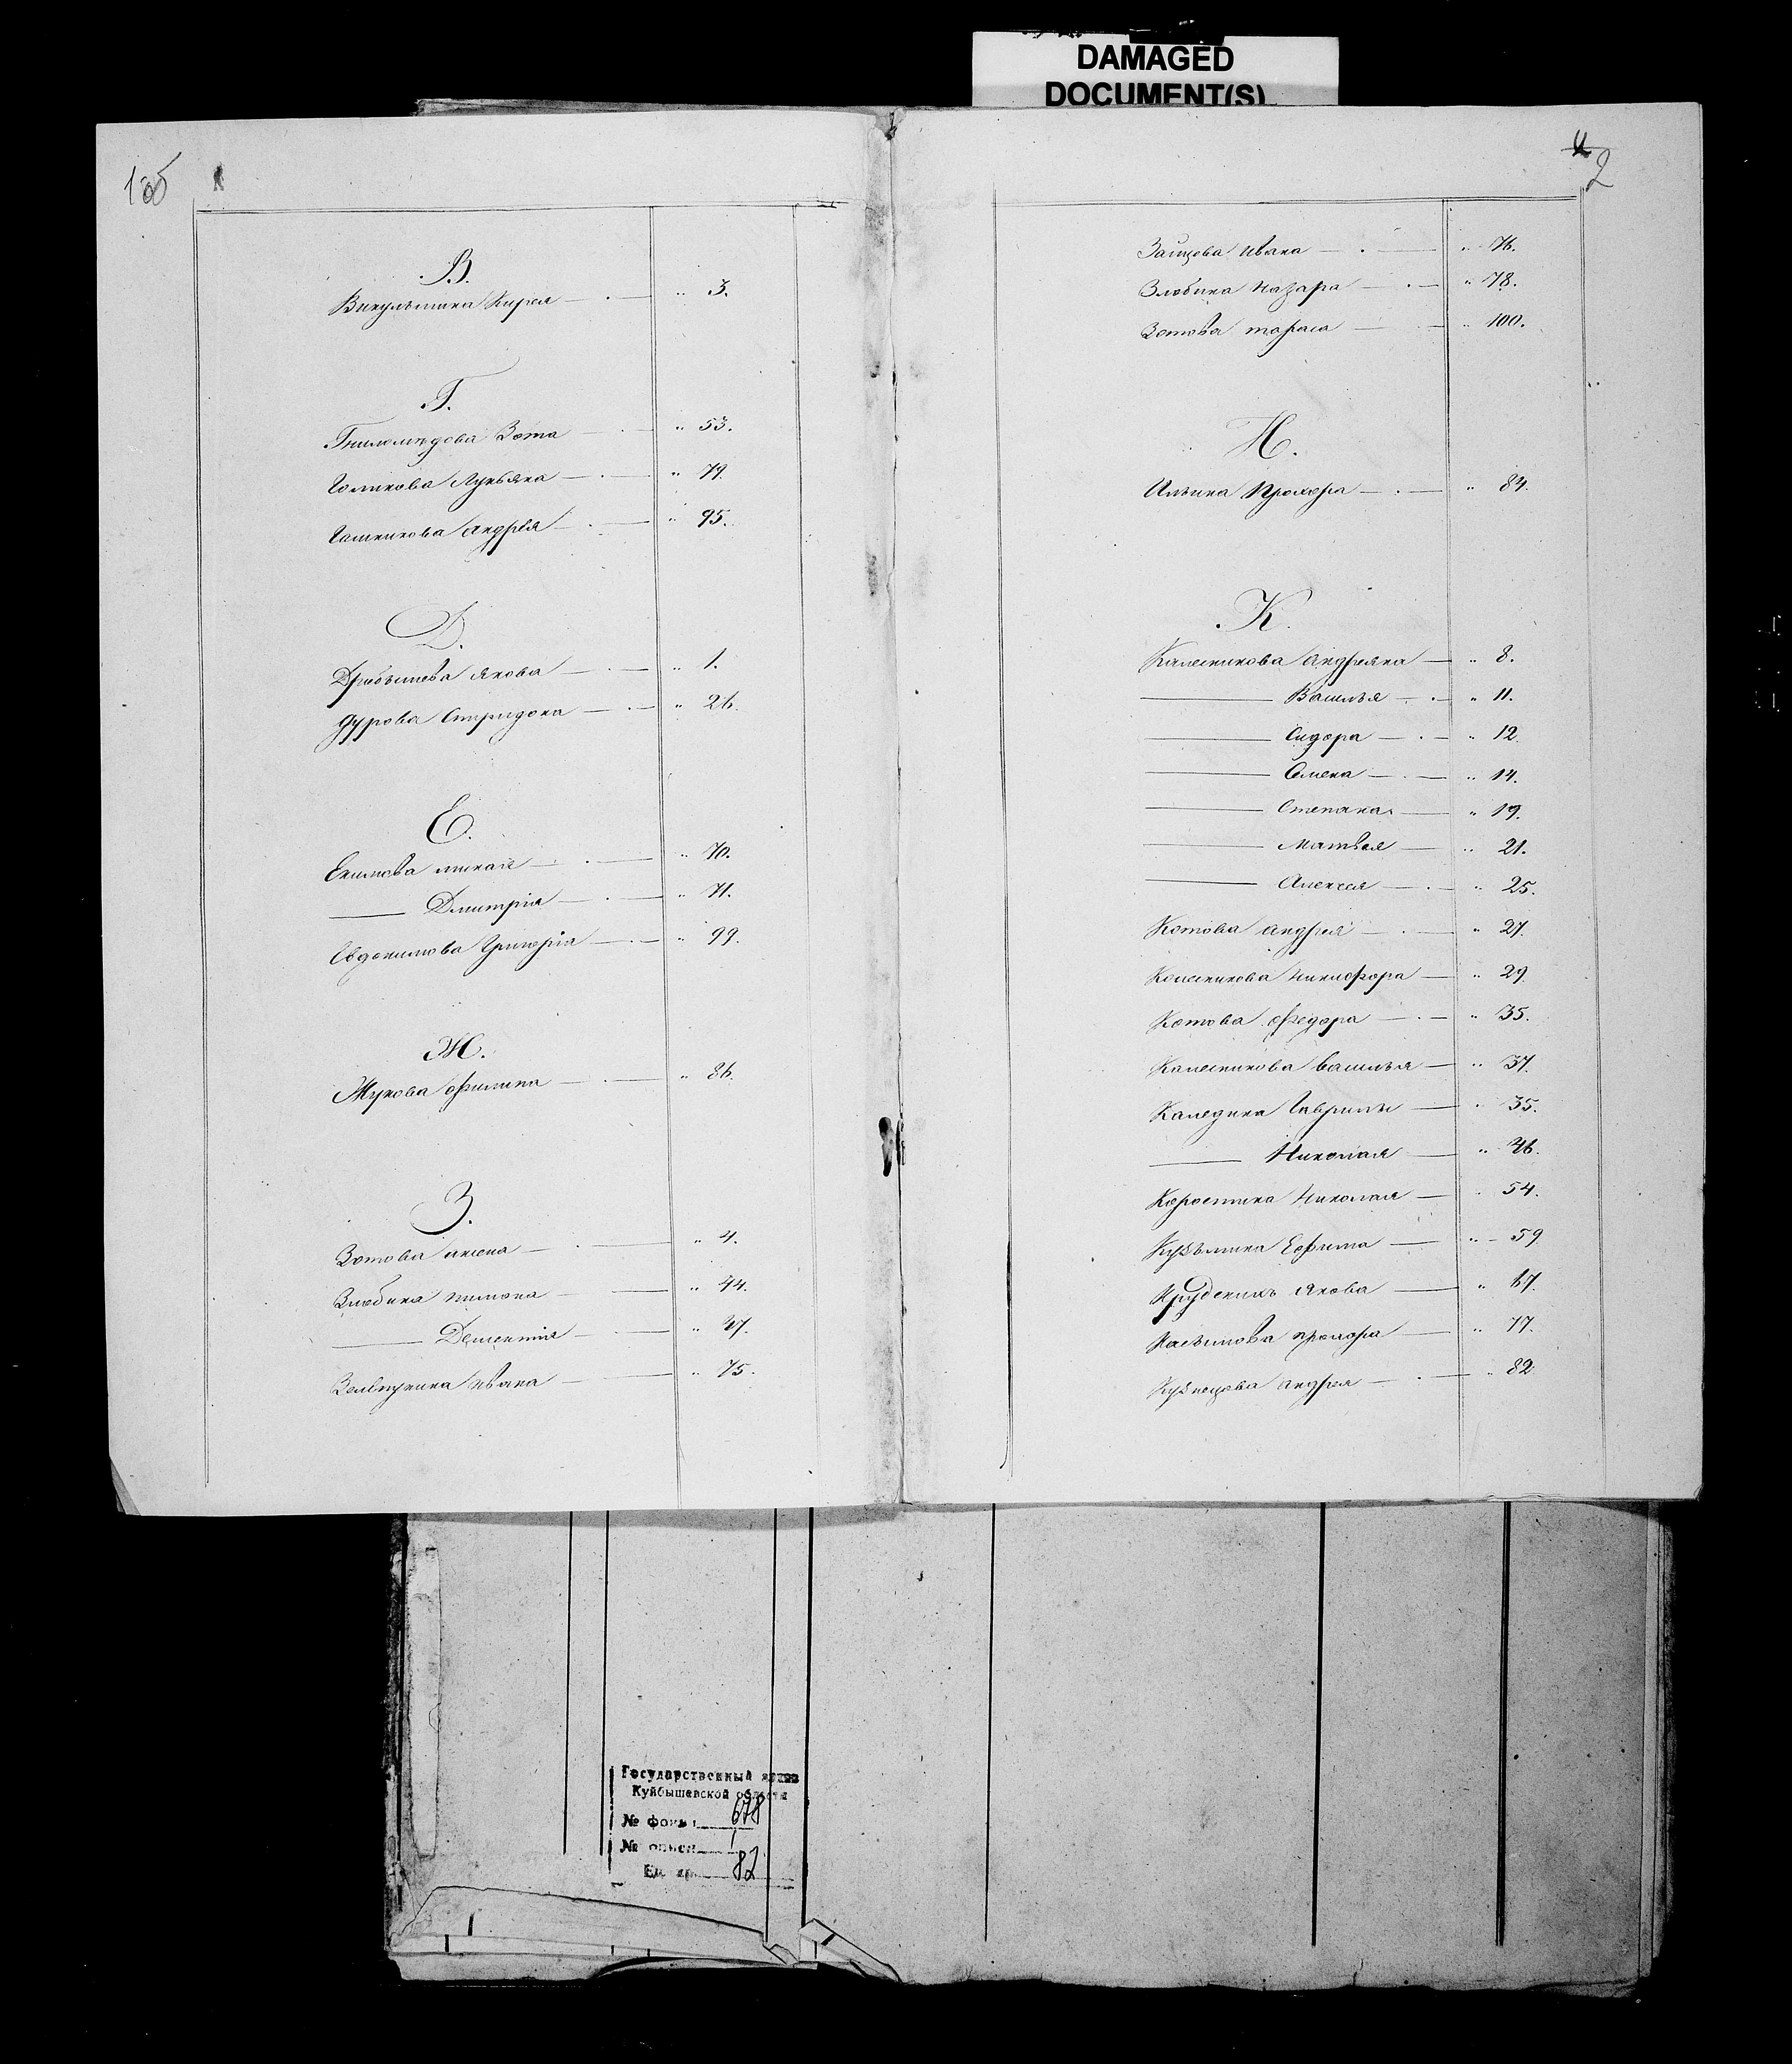 DAMAGED
DOCUMENT(S)
1об
В.
Викулъшина Кирея — " 3.
Г.
Гниломѣдова Зота — " 53.
Голикова Лукьяна — " 79.
Гашникова Андрѣя — " 95.
Д.
Дребышева Якова — " 1.
Дурова Спиридона — " 26.
Е.
Екимова — " 70.
—— Дмитрія — " 71.
Евдокимова Григорія — " 99.
Ж.
Жукова Филипа — " 86.
З.
Зотова — " 4.
Злобина пимона — " 44.
—— Дементия — " 47.
Ивана — " 75.
2
Зайцова Ивана — " 76.
Злобина Назара — " 78.
Зотова тараса — " 100.
И.
Ильина Прохора — " 84.
К.
Калесникова Андреяна — " 8.
—— Василья — " 11.
—— Сидора — " 12.
—— Семена — " 14.
—— Степана — " 19.
—— Матвея — " 21.
—— Алексея — " 25.
Котова андрея — " 27.
Колесникова Никифора — " 29.
Котова Федора — " 35.
Калесникова василья — " 37.
Каледина Гаврилы — " 35.
—— Николая — " 46.
Николая — " 54.
Кузьмина Ефима — " 59
Якова — " 67.
Касъимова прохора — " 77.
Кузнецова андрея — " 82
Государственный архив
Куйбышевской области
№ фонда 678
№ описи 1
Ед. хр. 82